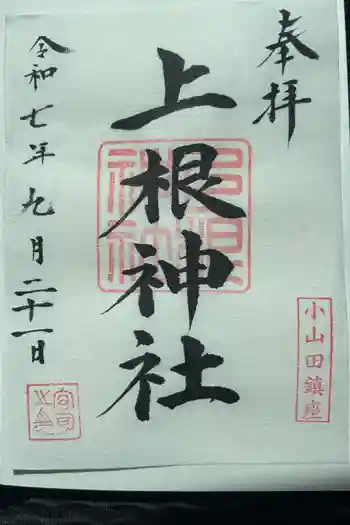 奉拝
小山田鎮座
上根神社
令和七年九月二十一日